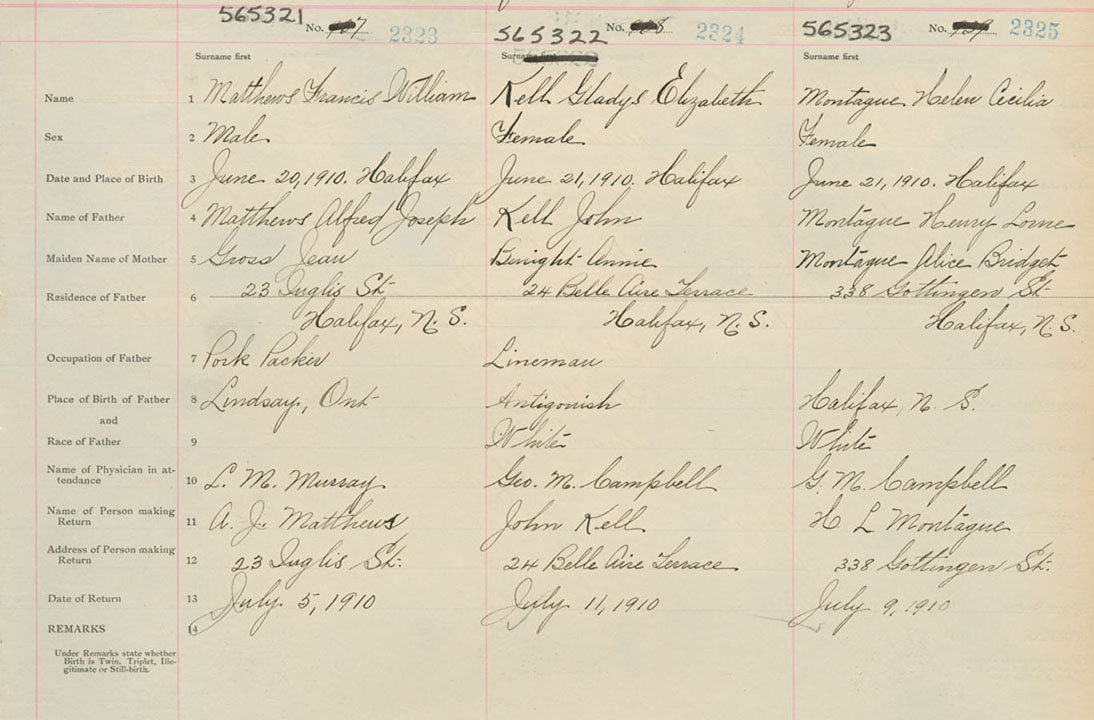 565321 No. 2323 565322 No. 2324 565323 No. 2325
Surname first Surname first Surname first
Name 1 Matthews Francis William Kell Gladys Elizabeth Montague Helen Cecilia
Sex 2 Male Female Female
Date and Place of Birth 3 June 20, 1910. Halifax June 21, 1910. Halifax June 21, 1910. Halifax
Name of Father 4 Matthews Alfred Joseph Kell John Montague Henry Lorne
Maiden Name of Mother 5 Gross Jean Benight Annie Montague Alice Bridget
Residence of Father 6 23 Inglis St. 24 Belle Aire Terrace 338 Gottingen St
Halifax, N. S. Halifax, N. S. Halifax, N. S.
Occupation of Father 7 Pork Packer Lineman
Place of Birth of Father 8 Lindsay, Ont Antigonish Halifax, N. S.
and
Race of Father 9 White White
Name of Physician in at-
tendance 10 L. M. Murray Geo. M. Campbell G. M. Campbell
Name of Person making
Return 11 A. J. Matthews John Kell H L Montague
Address of Person making
Return 12 23 Inglis St. 24 Belle Aire Terrace 338 Gottingen St.
Date of Return 13 July 5, 1910 July 11, 1910 July 9, 1910
REMARKS 14
Under Remarks state whether
Birth is Twin, Triplet, Ille-
gitimate or Still-birth.